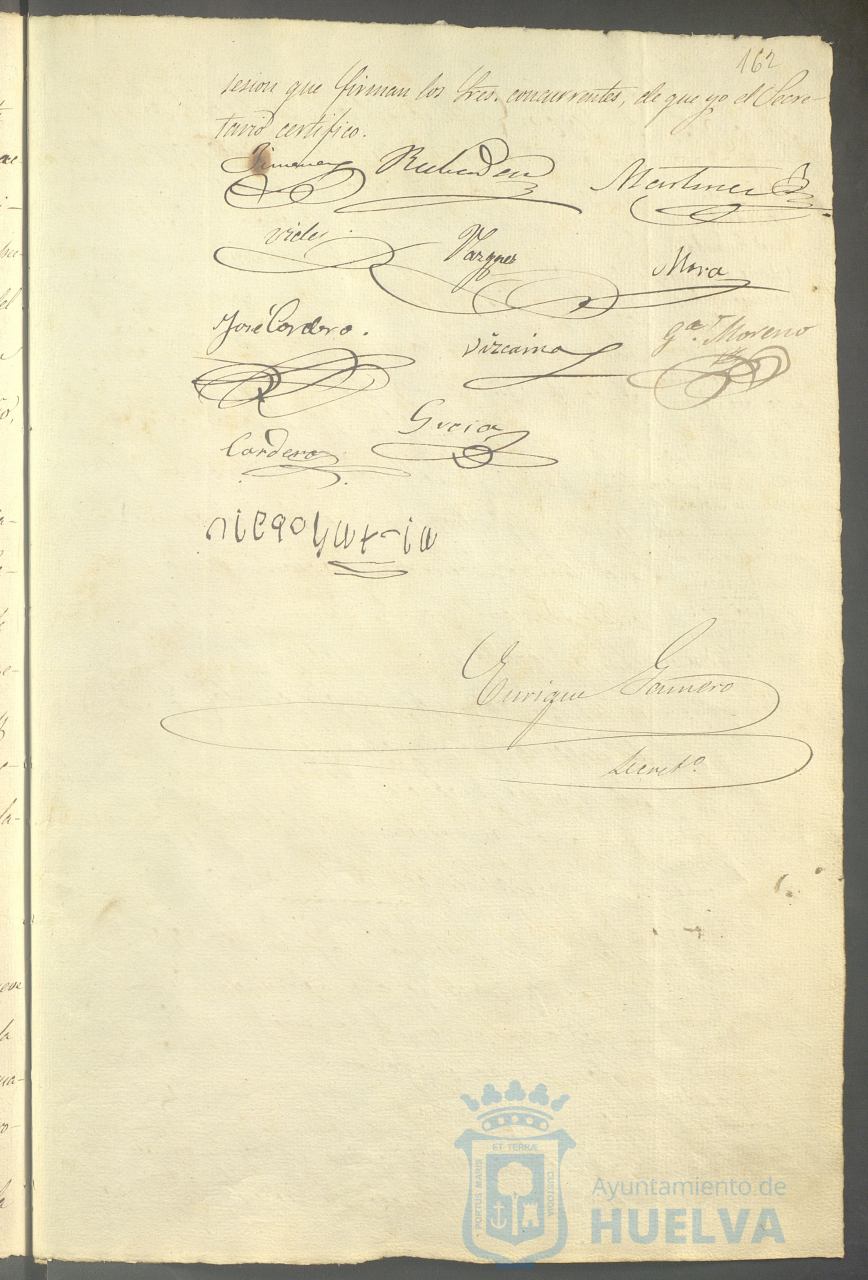 162
sesion que firman los Sres. concurrentes, de que yo el Secre-
tario certifico.
Jimenez
Martinez
Vides
Vazquez
Mora
José Cordero.
Vizcaino
Gª. Moreno
Garcia
Cordero
Enrique Gamero
Secretº.
ET TERRÆ
PORTUS MARIS
CUSTODIA
Ayuntamiento de
HUELVA